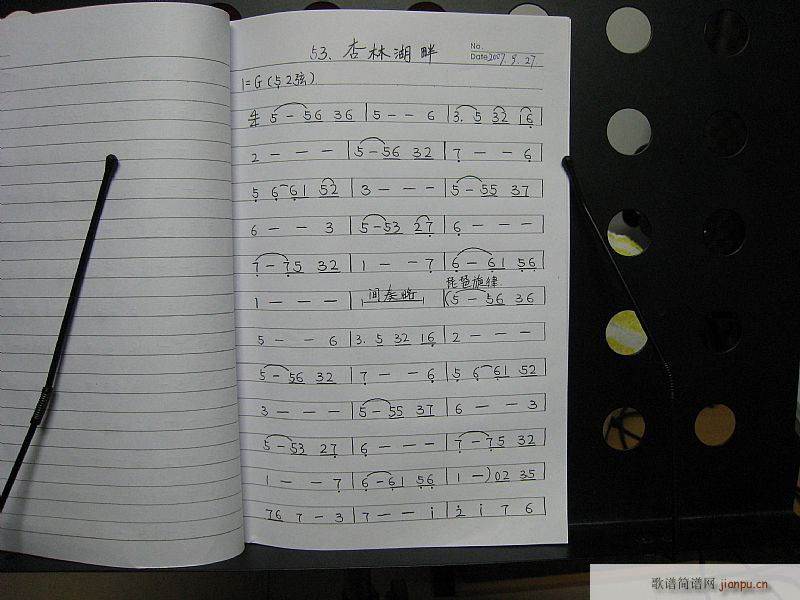 53. 杏林湖畔
No.
Date 2007. 9. 27
1=G (5 2弦)
5 - 56 36 | 5 - - 6 | 3. 5 32 16 |
2 - - - | 5 - 56 32 | 7 - - 6 |
5 6 61 52 | 3 - - - | 5 - 55 37 |
6 - - 3 | 5 - 53 27 | 6 - - - |
7 - 75 32 | 1 - - 7 | 6 - 61 56 |
琵琶旋律
1 - - - | 间奏略 | (5 - 56 36 |
5 - - 6 | 3. 5 32 16 | 2 - - - |
5 - 56 32 | 7 - - 6 | 5 6 61 52 |
3 - - - | 5 - 55 37 | 6 - - 3 |
5 - 53 27 | 6 - - - | 7 - 75 32 |
1 - - 7 | 6 - 61 56 | 1 -) 02 35 |
76 7 - 3 | 7 - - i | 2 i 7 6 |
歌谱简谱网 jianpu.cn